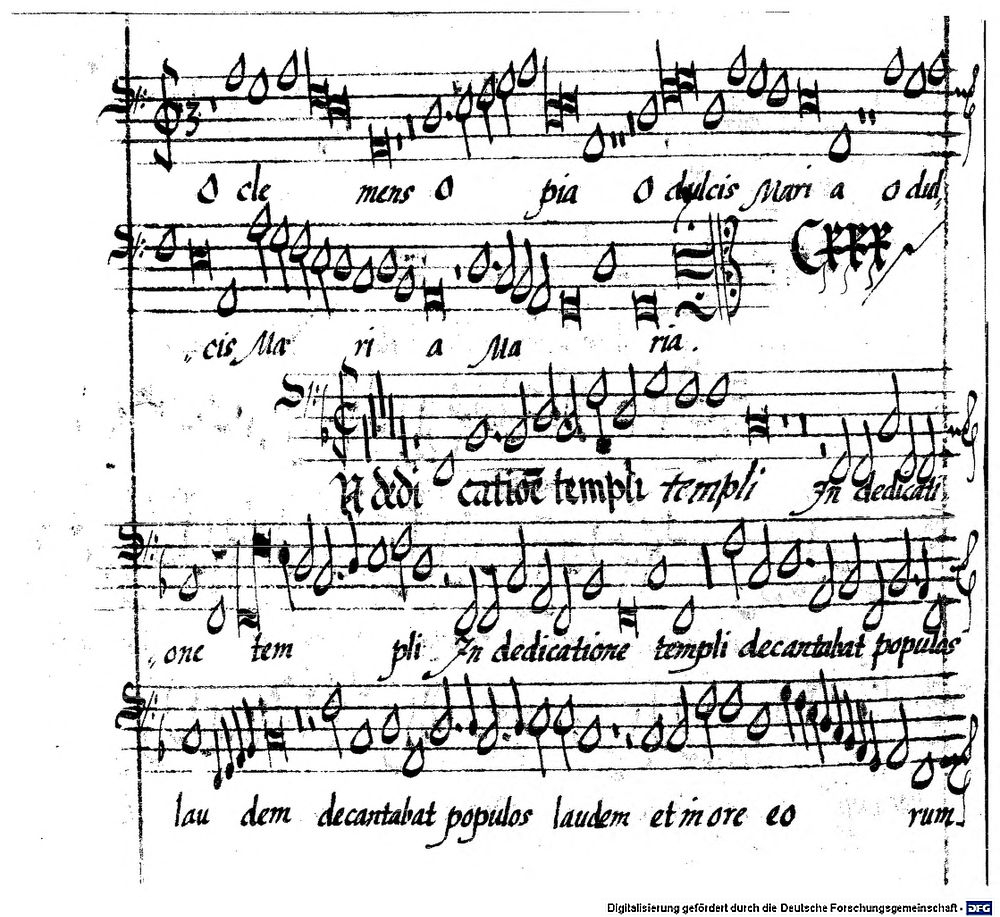 O cle mens O pia O dulcis Mari a o dul„
„cis Ma ri a Ma ria.
CXXX
IN dedi catioē templi templi In dedicati
„one tem pli In dedicatione templi decantabat populos
lau dem decantabat populos laudem et in ore eo rum.
Digitalisierung gefördert durch die Deutsche Forschungsgemeinschaft - DFG